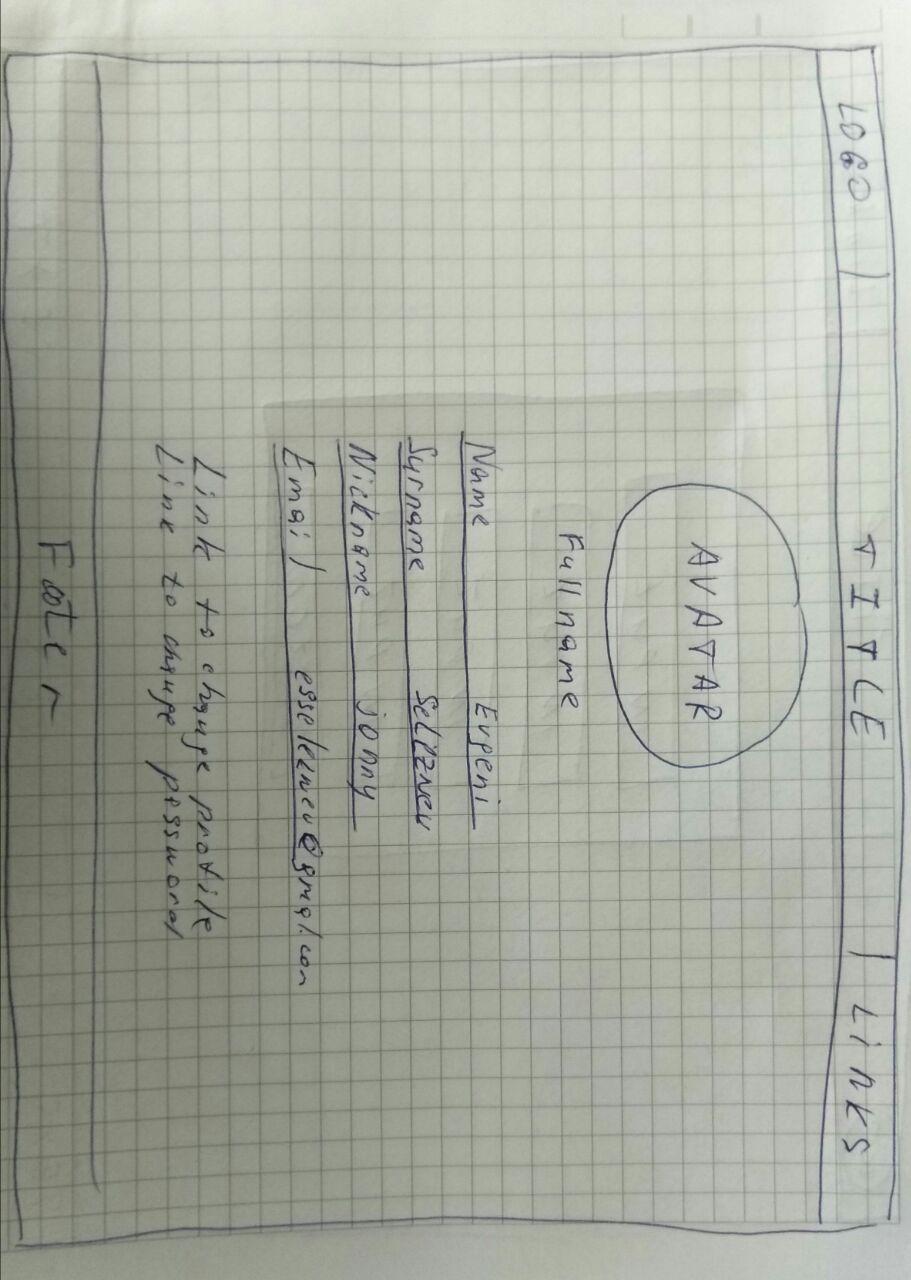 LOGO TITLE Links
AVATAR
Full name
Name Evgeni
Surname Seleznev
Nickname jonny
Email esseleznev@gmal.com
Link to change profile
Link to change password
Footer